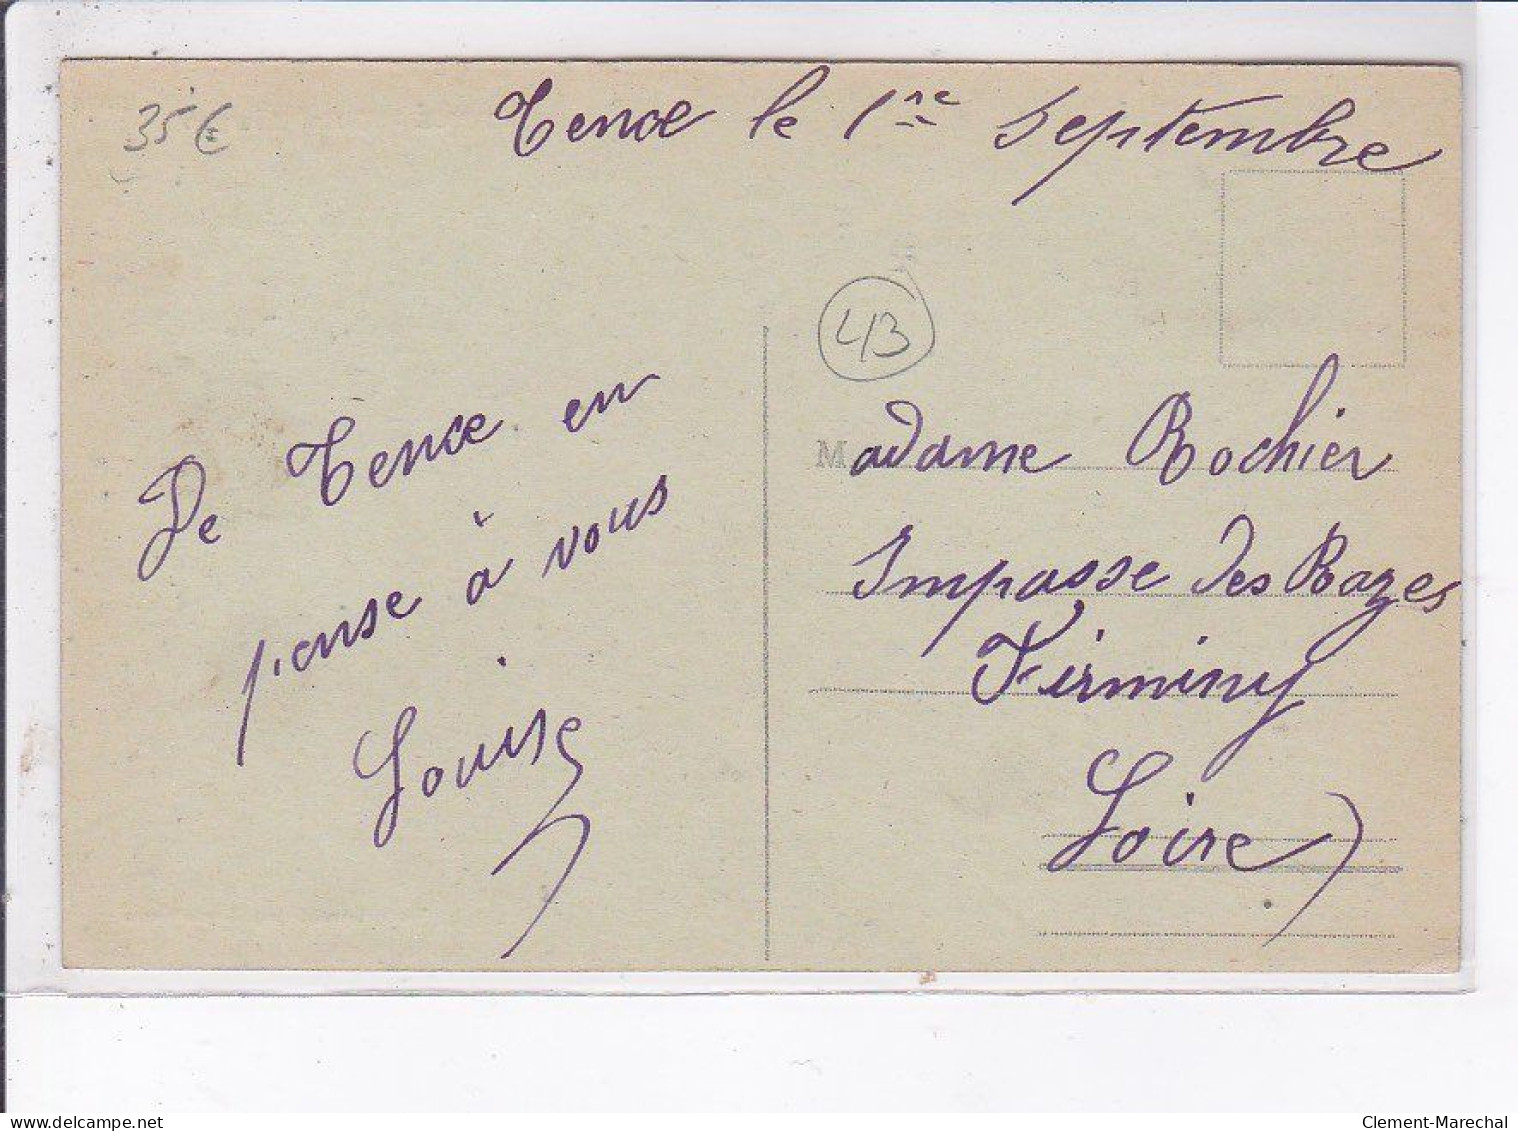 35 €
Tence le 1re Septembre
43
De Tence en
pense à vous
Louise
Madame Rochier
Impasse des Razes
Firminy
Loire)
delcampe.net
Clement-Marechal